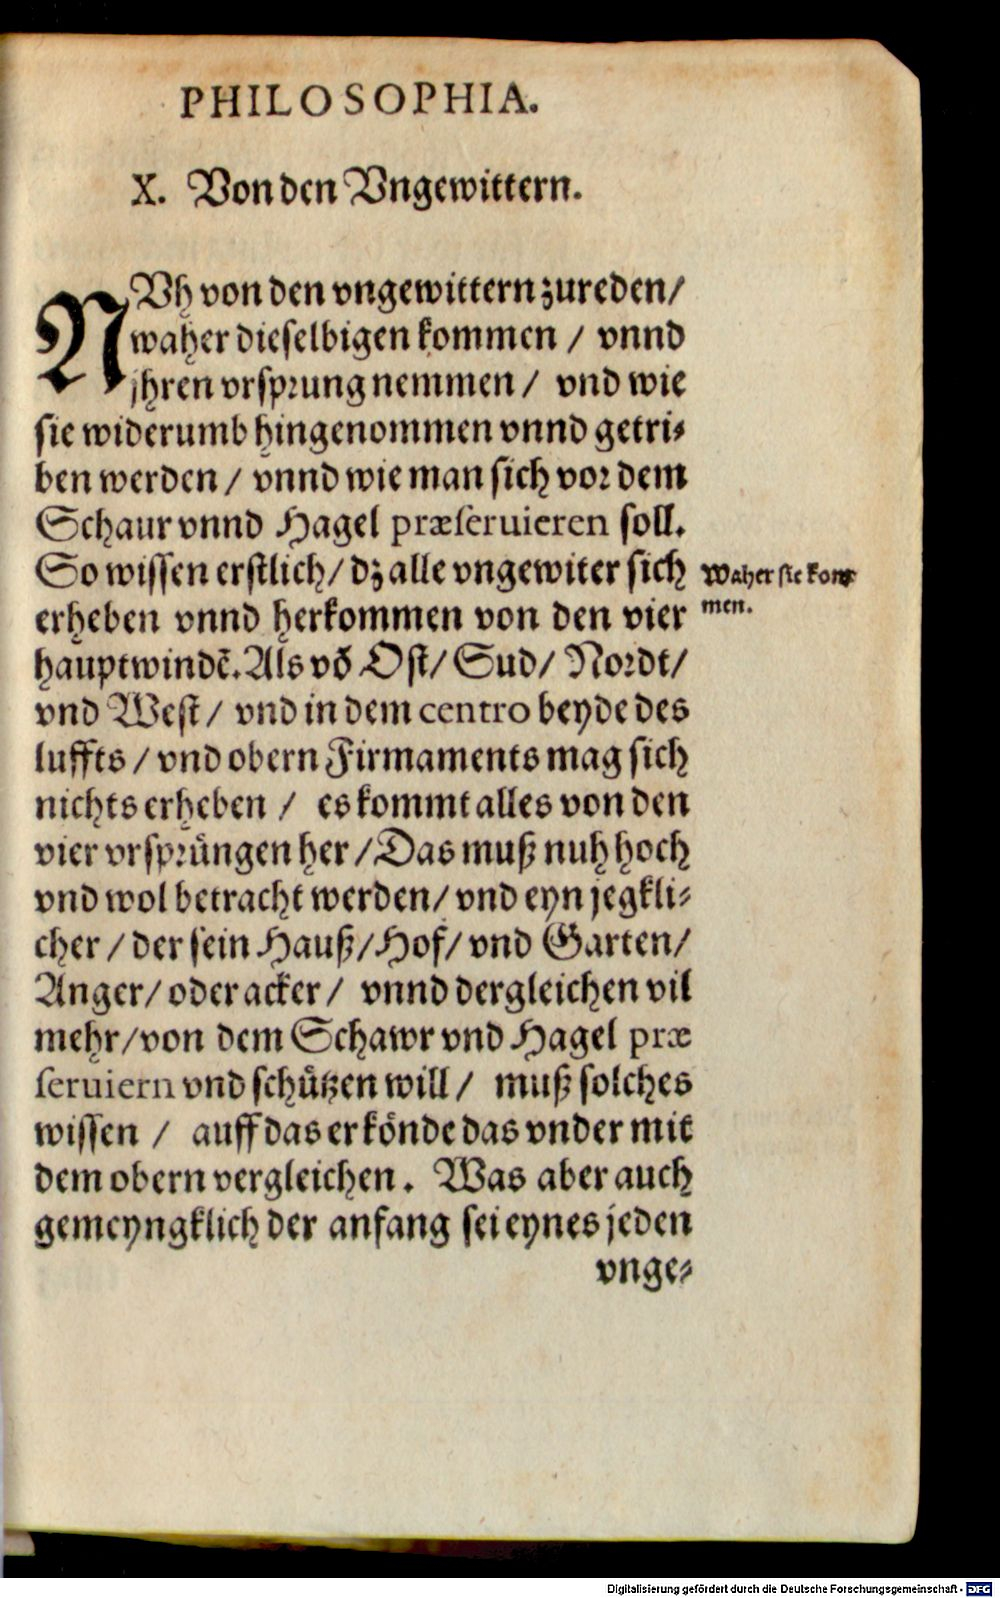 PHILOSOPHIA.
X. Von den Vngewittern.
NVh von den vngewittern zureden/
waher dieselbigen kommen / vnnd
jhren vrsprung nemmen / vnd wie
sie widerumb hingenommen vnnd getri-
ben werden / vnnd wie man sich vor dem
Schaur vnnd Hagel præseruieren soll.
So wissen erstlich/ dz alle vngewiter sich
erheben vnnd herkommen von den vier
hauptwindẽ. Als võ Ost/ Sud/ Nordt/
vnd West/ vnd in dem centro beyde des
luffts / vnd obern Firmaments mag sich
nichts erheben / es kommt alles von den
vier vrsprüngen her / Das muß nuh hoch
vnd wol betracht werden/ vnd eyn jegkli-
cher / der sein Hauß/ Hof/ vnd Garten/
Anger/ oder acker / vnnd dergleichen vil
mehr/ von dem Schawr vnd Hagel præ
seruiern vnd schützen will / muß solches
wissen / auff das er könde das vnder mit
dem obern vergleichen. Was aber auch
gemeyngklich der anfang sei eynes jeden
vnge-
Waher sie kom-
men.
Digitalisierung gefördert durch die Deutsche Forschungsgemeinschaft - DFG